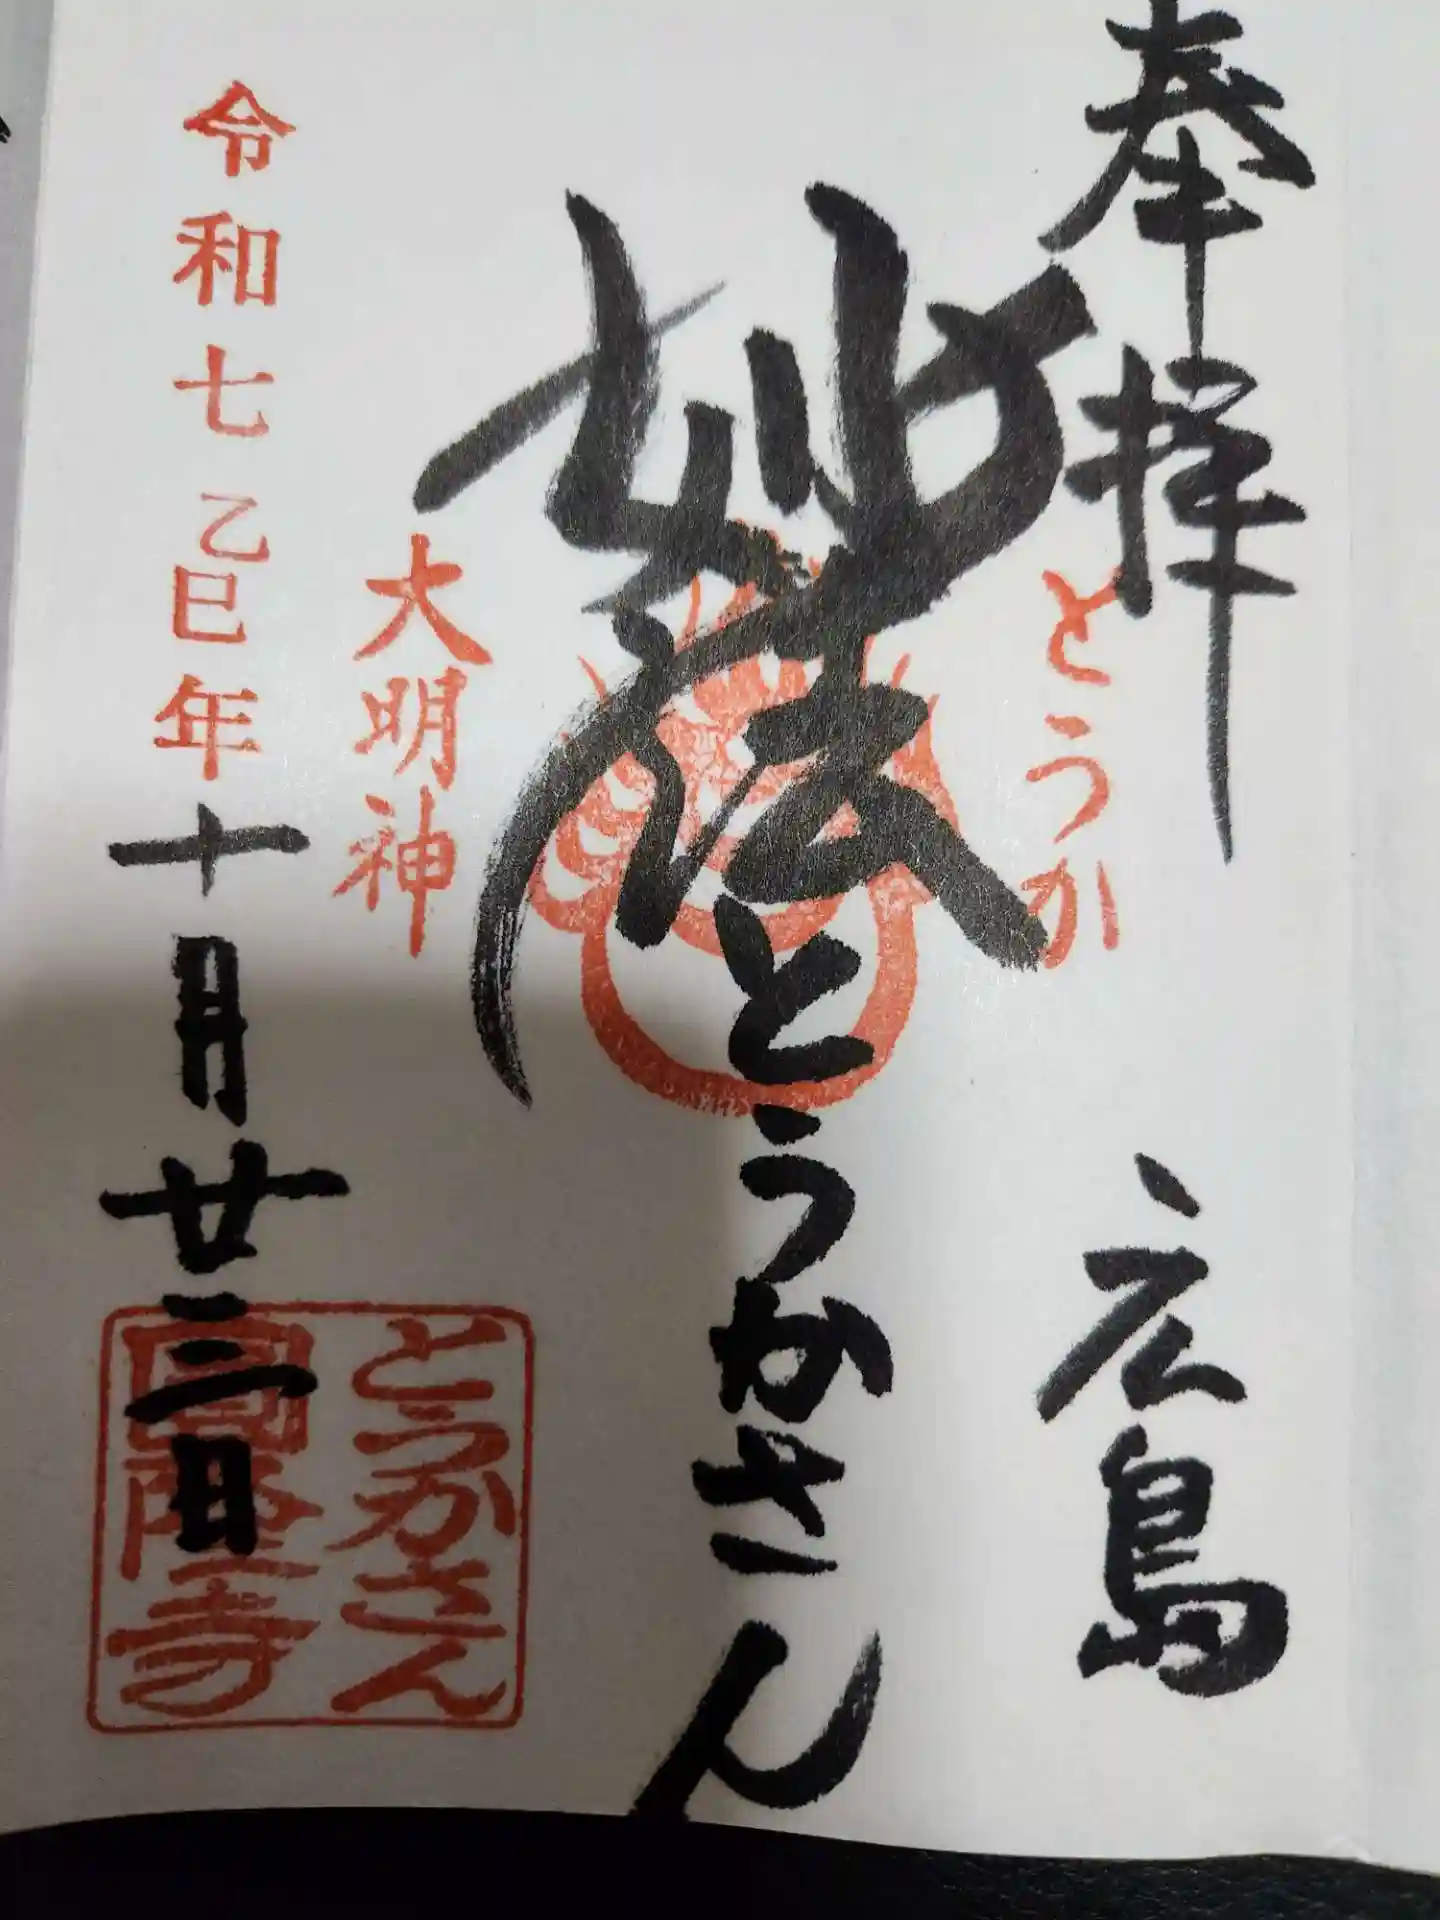 奉拝
広島
とうか
妙法
とうかさん
大明神
令和七乙巳年十月廿三日
とうかさん
圓隆寺